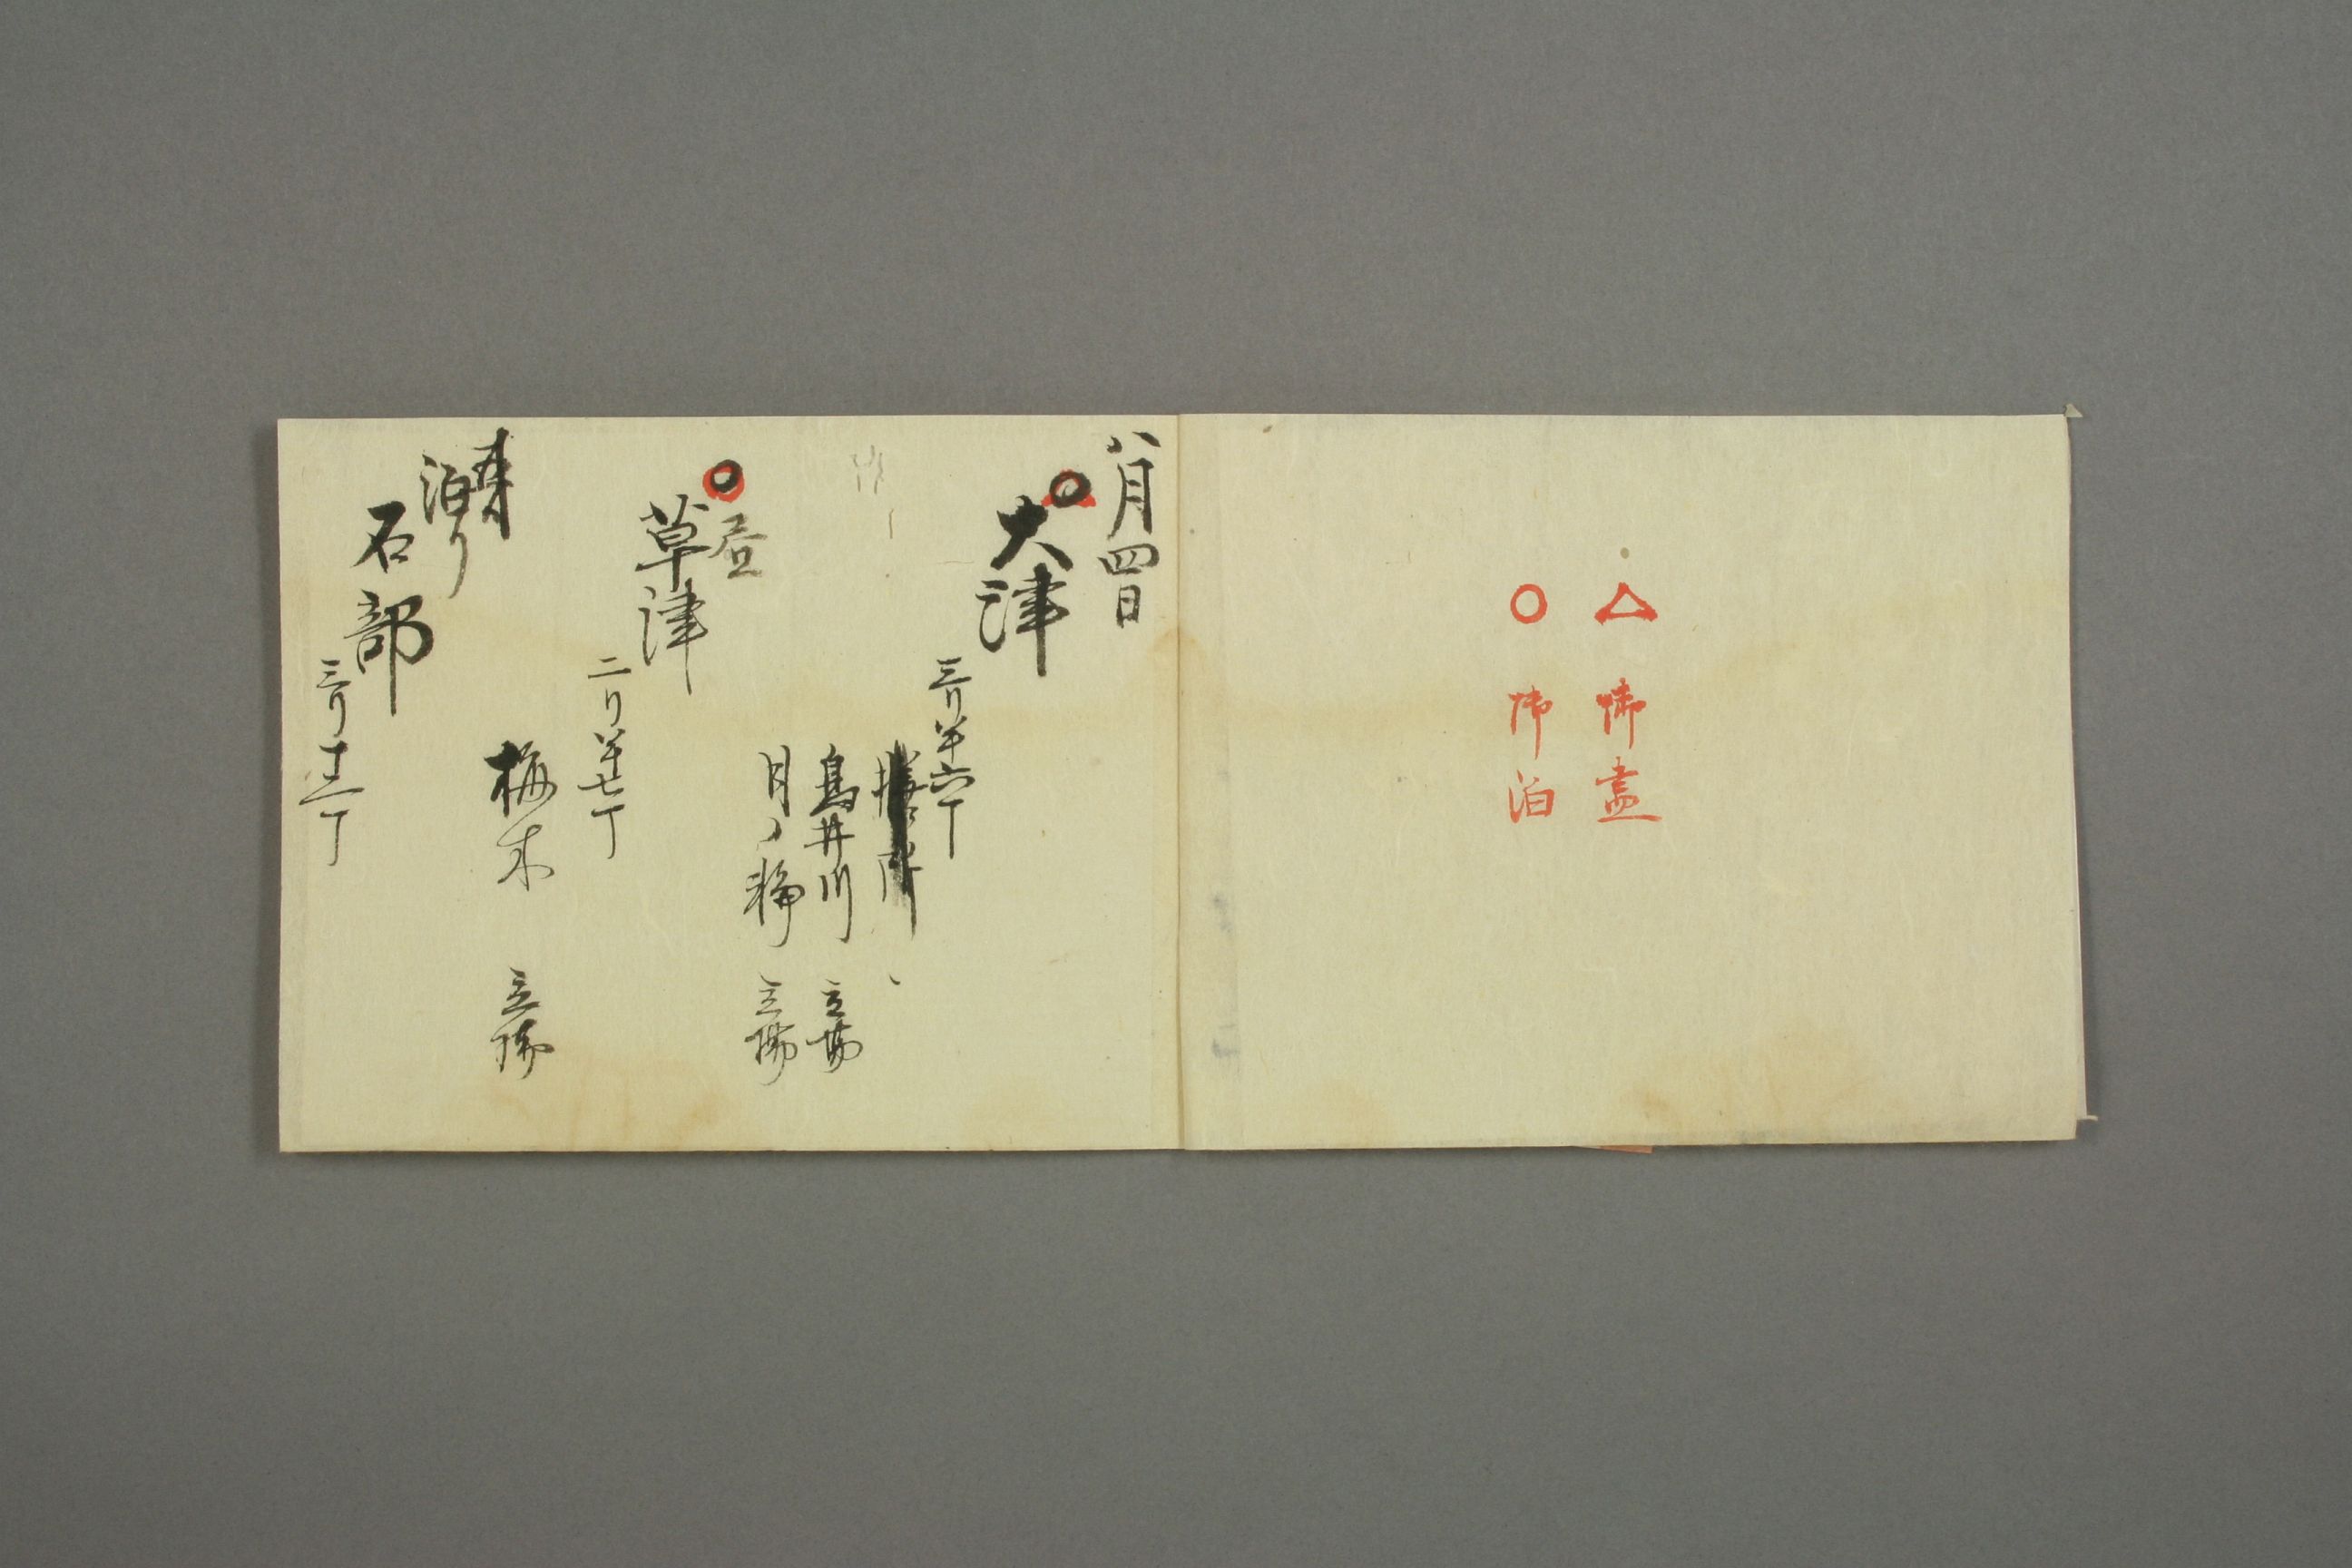 △ 御昼
○ 御泊
八月四日
○大津
三リ半六丁
膳所
鳥井川 立場
月ノ輪 立場
○昼
草津
二リ半七丁
梅木 立場
泊り
石部
三リ十二丁